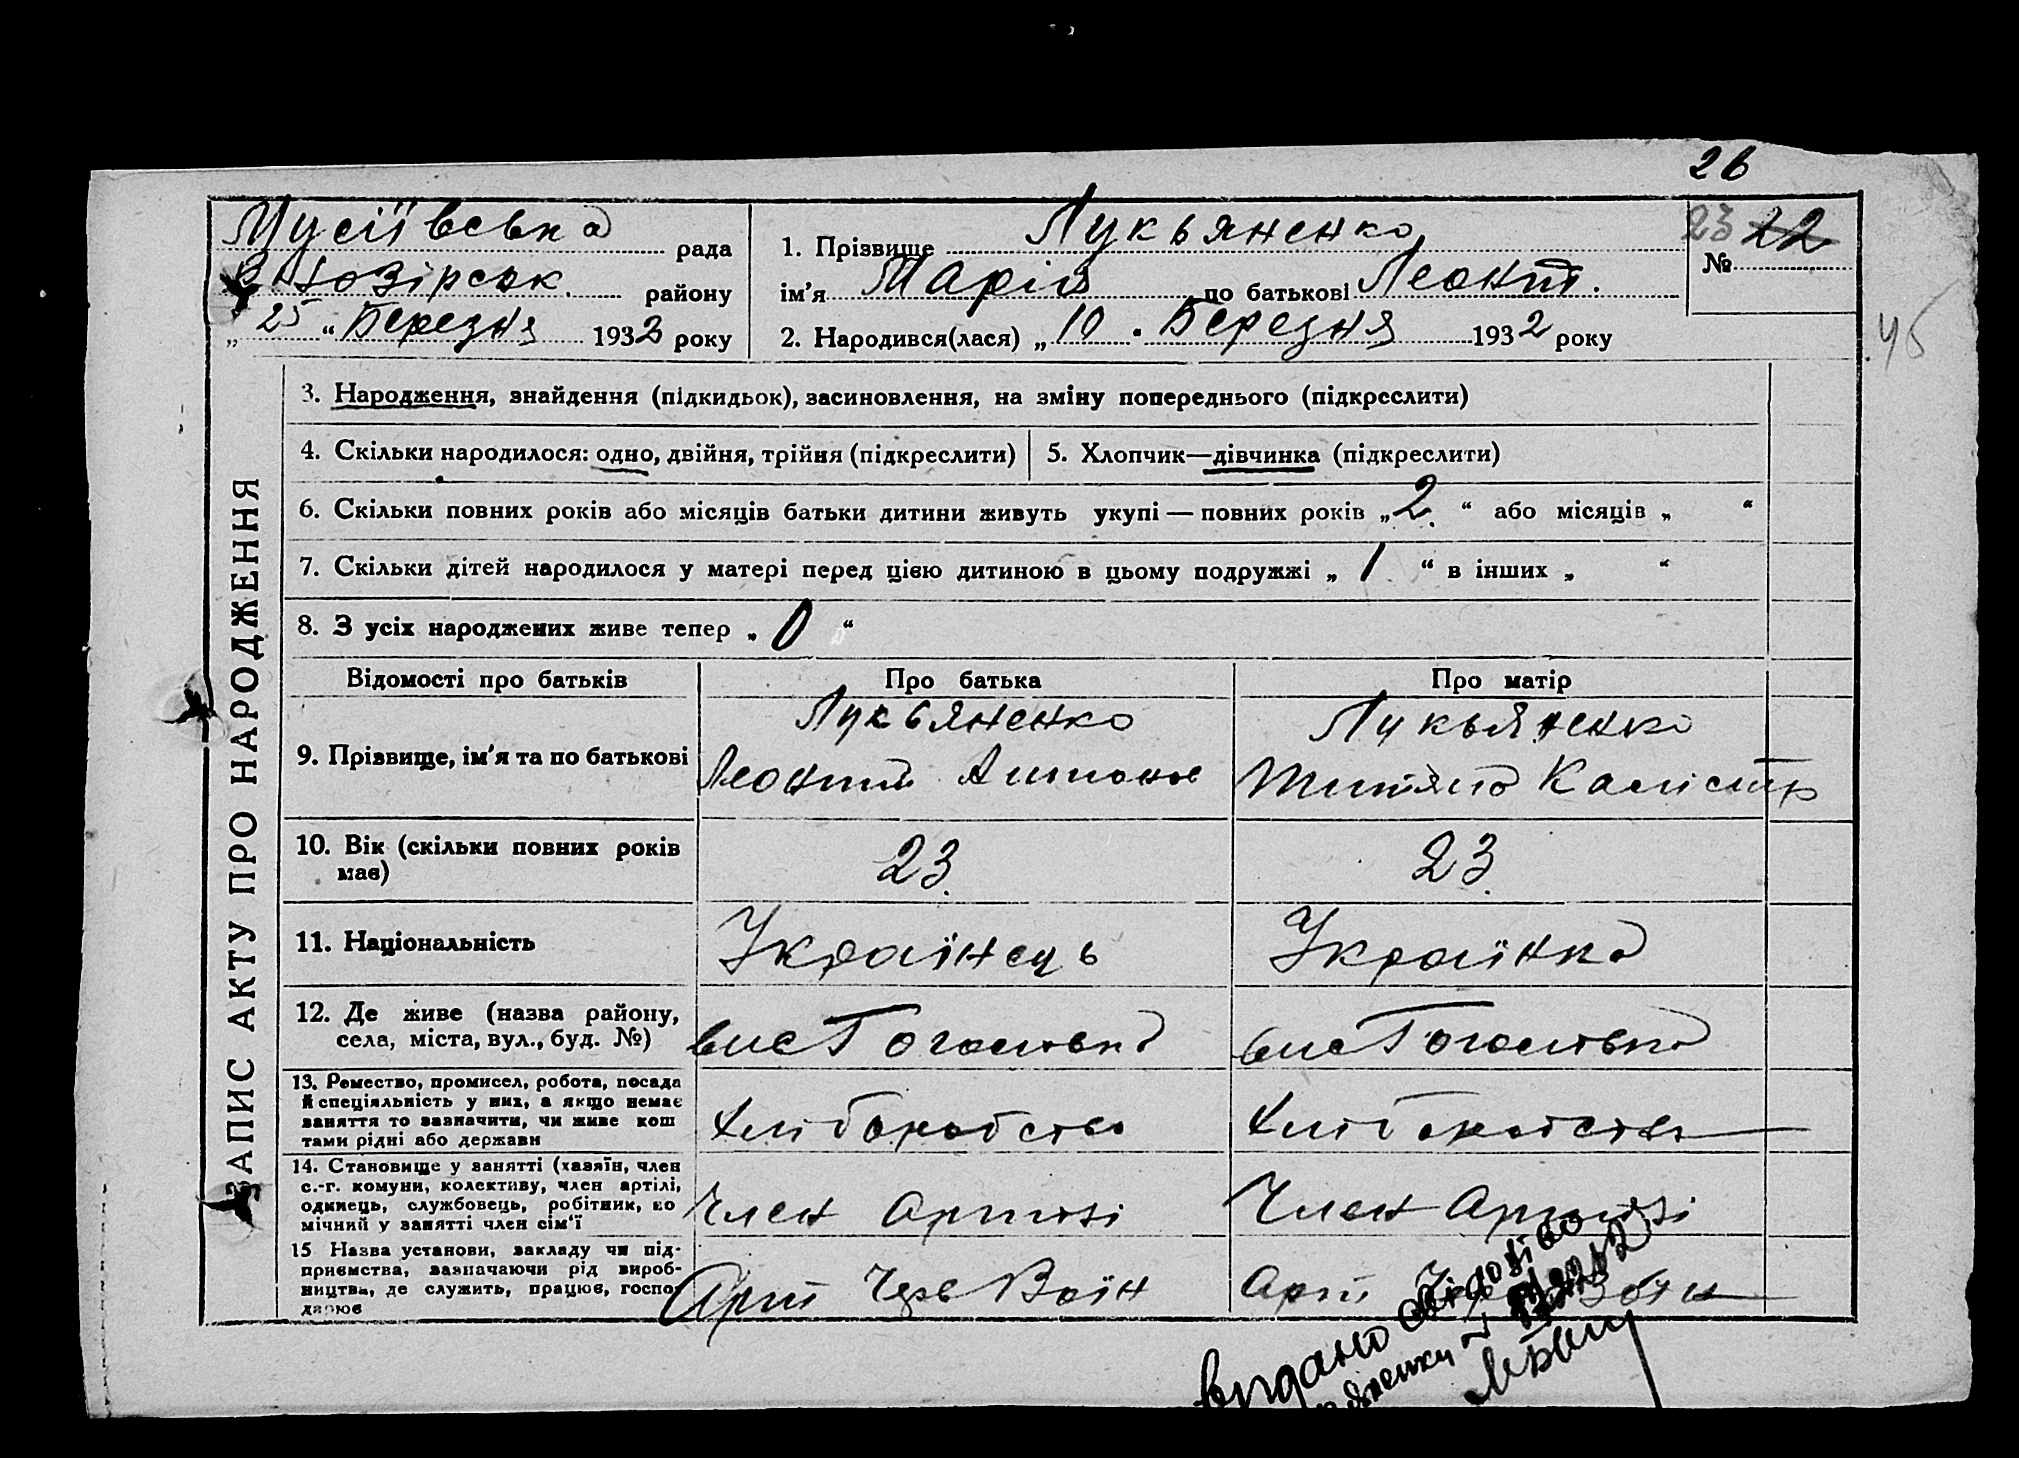 26
Мусіївська рада
1. Прізвище Лукьяненко
23 22
№
район
озірськ. району
ім'я Марія по батькові Леонт.
„ 25 “ Березня 1932 року
2. Народився(лася) „ 10 . Березня 1932 року
45
ЗАПИС АКТУ ПРО НАРОДЖЕННЯ
3. Народження, знайдення (підкидьок), засиновлення, на зміну попереднього (підкреслити)
4. Скільки народилося: одно, двійня, трійня (підкреслити)
5. Хлопчик—дівчинка (підкреслити)
6. Скільки повних років або місяців батьки дитини живуть укупі — повних років „ 2. “ або місяців „ “
7. Скільки дітей народилося у матері перед цією дитиною в цьому подружжі „ 1 “ в інших „ “
8. З усіх народжених живе тепер „ 0 “
Відомості про батьків
Про батька
Про матір
9. Прізвище, ім'я та по батькові
Лукьяненко
Леонтій Антонов
Лукьяненко
Калістр
10. Вік (скільки повних років
має)
23.
23.
11. Національність
Українець
Українка
12. Де живе (назва району,
села, міста, вул., буд. №)
вис Гоголівка
вис Гоголівка
13. Ремество, промисел, робота, посада
й спеціяльність у них, а якщо немає
заняття то зазначити, чи живе кош
тами рідні або держави
Хліборобство
Хліборобство
14. Становище у занятті (хазяїн, член
с.-г. комуни, колективу, член артілі,
одинець, службовець, робітник, по
мічний у занятті член сім'ї
Член Артілі
Член Артілі
15 Назва установи, закладу чи під-
приємства, зазначаючи рід вироб-
ництва, де служить, працює, госпо
дарює
Арт Черв Воїн
Арт Воїн
Видано